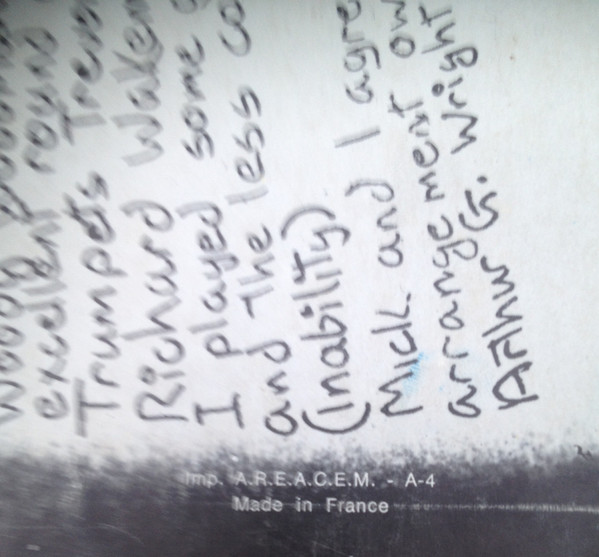 excellent round
Trumpets Trev
Richard Wakem
I played some
and The less co
(inability)
Mick. and I agre
arrangement ow
Arthur G. Wright
Imp. A.R.E.A.C.E.M. - A-4
Made in France